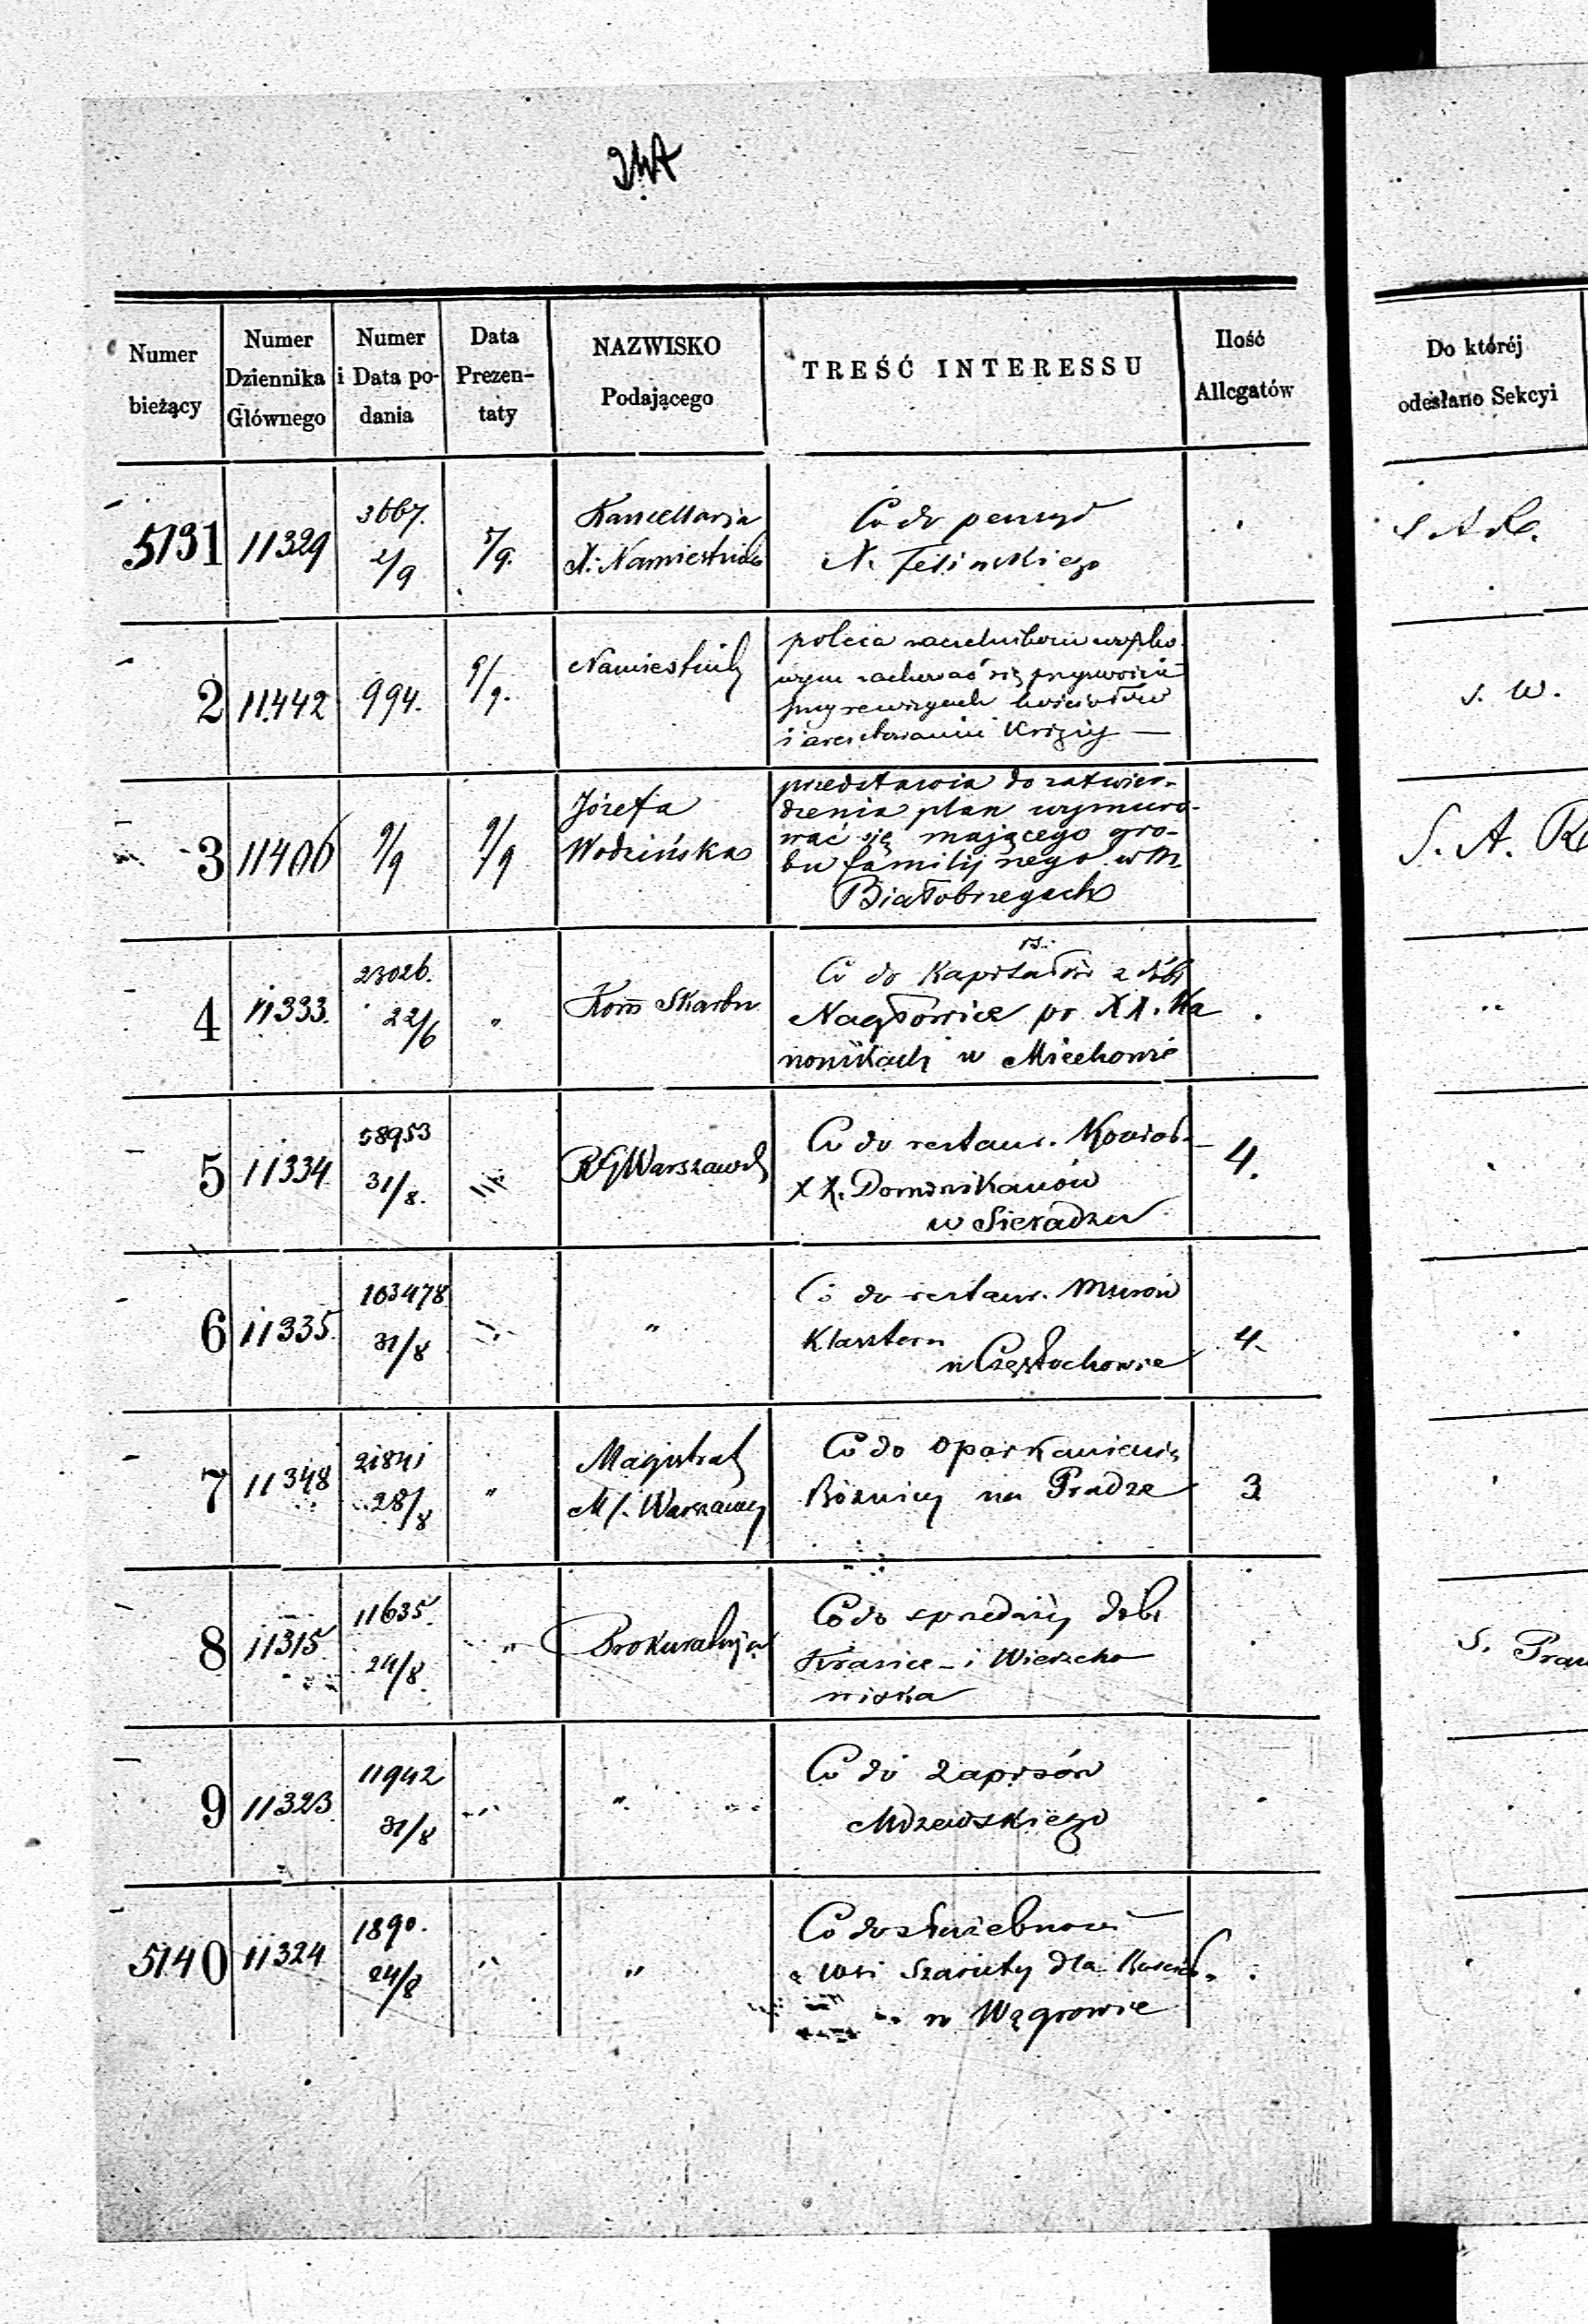 Numer bieżący
Numer Dziennika Głównego
Numer i Data podania
Data Prezentaty
NAZWISKO Podającego
TREŚĆ INTERESSU
Ilość Allegatów
Do któréj odesłano Sekcyi
5131 11329 3667. 2/9 7/9.
Kancellarja
X: Namiestnika
Co do pensyi
X. Felińskiego
2 11442 994. 9/9.
Namiestnik
poleca naczelnikom
zachować się przyzwoicie
przy rewizyach kościołów
i aresztowaniu Księży —
s. W.
3 11406 9/9 9/9
Józefa
Wodzińska
przedstawia do zatwier-
dzenia plan wymuro-
wać się mającego gro-
bu familijnego w m.
Białobrzegach
S. A. R
4 11333. 23026. 22/6 "
Kom Skarbu
rs.
Co do Kapitałów z dóbr
Nagłowice pr XX. Ka
nonikach w Miechowie
"
5 11334 58953 31/8.
RG Warszawsk
Co do restaur. Kościoł.
XX. Dominikanów
w Sieradzu
4.
6 11335. 103478 31/8
"
Co do restaur. Murów
Klasztoru
w Częstochowie
4.
7 11348 21841 28/8 "
Magistrat
M/. Warszawy
Co do oparkanienia
Bóżnicy na Pradze
3
8 11315 11635. 24/8. "
Prokuratorja
Co do sprzedaży dóbr
Krasice - i Wierzcho
wiska
S. Praw
9 11323 11942 31/8 "
"
Co do zapisów
Mdzewskiego
5140 11324 1890. 24/8 "
"
Co do służebności
z wsi Szaruty dla Kościoł.
w Wągrowie